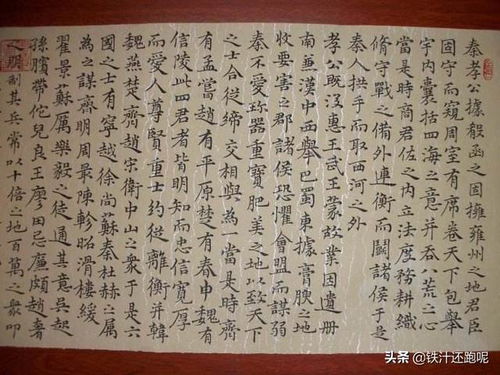 秦孝公據殽函之固擁雍州之地君臣
固守而窺周室有席卷天下包舉
宇內囊括四海之意并吞八荒之心
當是時商君佐之內立法度務耕織
脩守戰之備外連衡而鬭諸侯于是
秦人拱手而取西河之外
孝公既沒惠王武王蒙故業因遺册
南兼漢中西舉巴蜀東據膏腴之地
收要害之郡諸侯恐懼會盟而謀弱
秦不愛珍器重寶肥美之地以致天下
之士合從締交相與為一當是時齊
有孟嘗趙有平原楚有春申魏有
信陵此四君者皆明知而忠信寬厚
而愛人尊賢重士約從離衡并韓
魏燕楚齊趙宋衛中山之衆于是六
國之士有寧越徐尚蘇秦杜赫之屬
為之謀齊明周最陳軫昭滑樓緩
翟景蘇厲樂毅之徒通其意吳起
孫臏帶佗兒良王廖田忌廉頗趙奢
之朋制其兵常以十倍之地百萬之衆叩
头条 @铁汁还跑呢